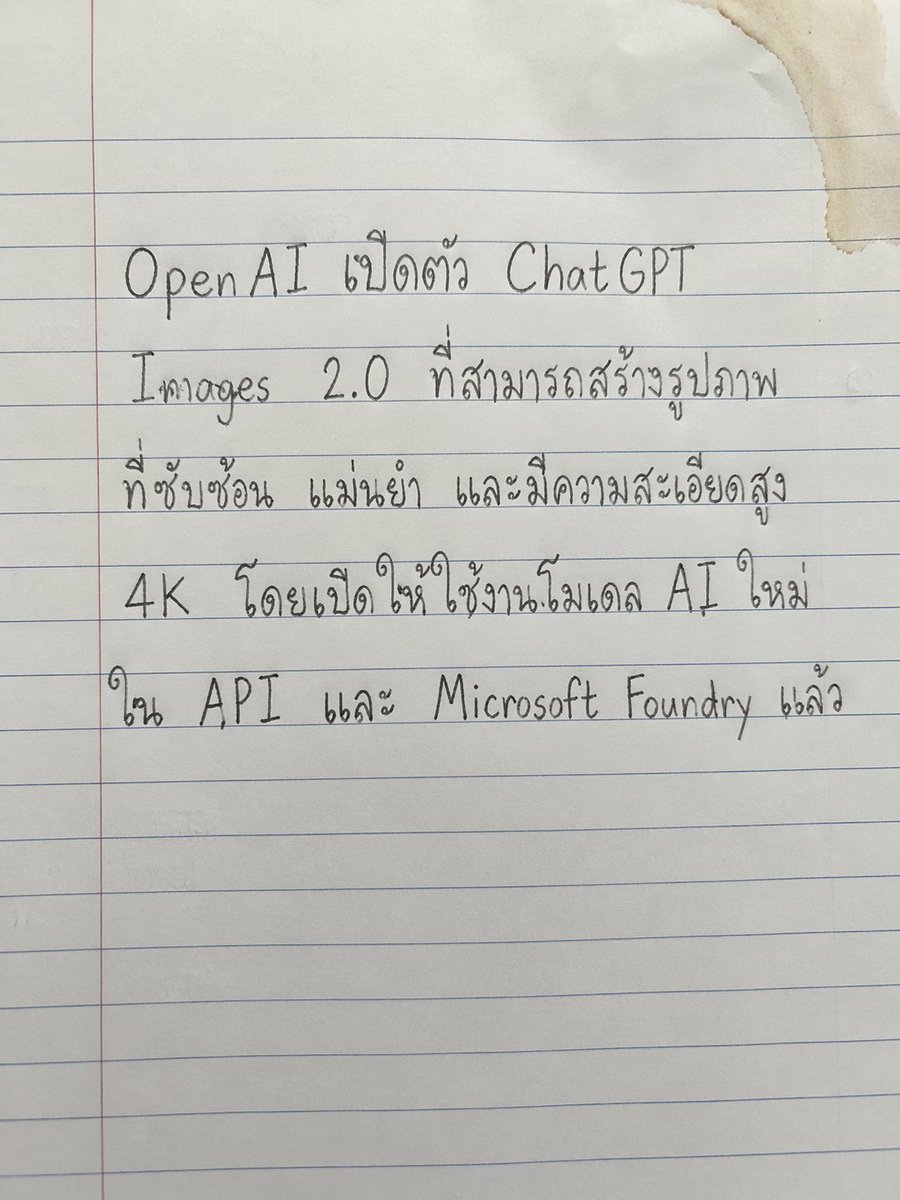 OpenAI เปิดตัว ChatGPT
Images 2.0 ที่สามารถสร้างรูปภาพ
ที่ซับซ้อน แม่นยำ และมีความสะเอียดสูง
4K โดยเปิดให้ใช้งานโมเดล AI ใหม่
ใน API และ Microsoft Foundry แล้ว